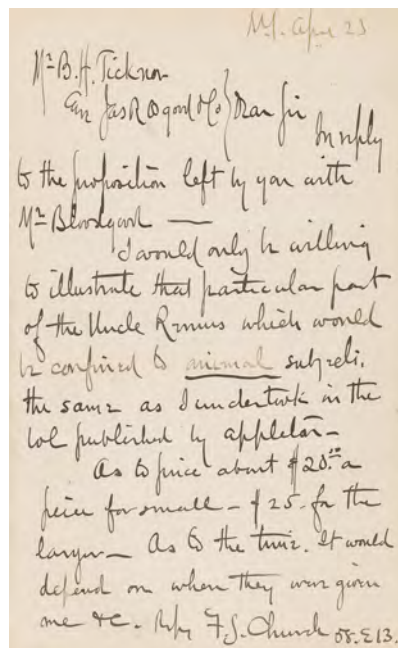 NY. Apr 23
Mr. B. H. Ticknor
Care Jas R Osgood & Co } Dear Sir
In reply
to the proposition left by you with
Mr Bloodgood —
I would only be willing
to illustrate that particular part
of the Uncle Remus which would
be confined to animal subjects.
the same as I undertook in the
vol published by appleton —
As to price about $20.00 a
piece for small — $25. for the
larger — As to the time. It would
depend on when they were given
me &c. Rspy F. S. Church 58. E 13.